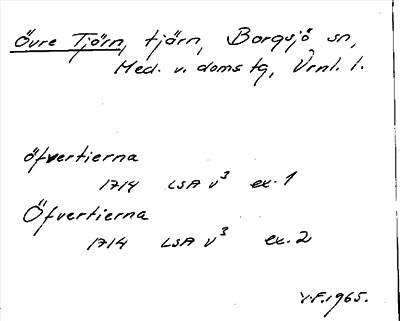 Övre Tjörn, tjärn, Borgsjö sn,
Med. v. doms tg, Vrnl. l.
öfvertierna
1714 LSA V³ ex. 1
Öfvertierna
1714 LSA V³ ex. 2
Y.F. 1965.